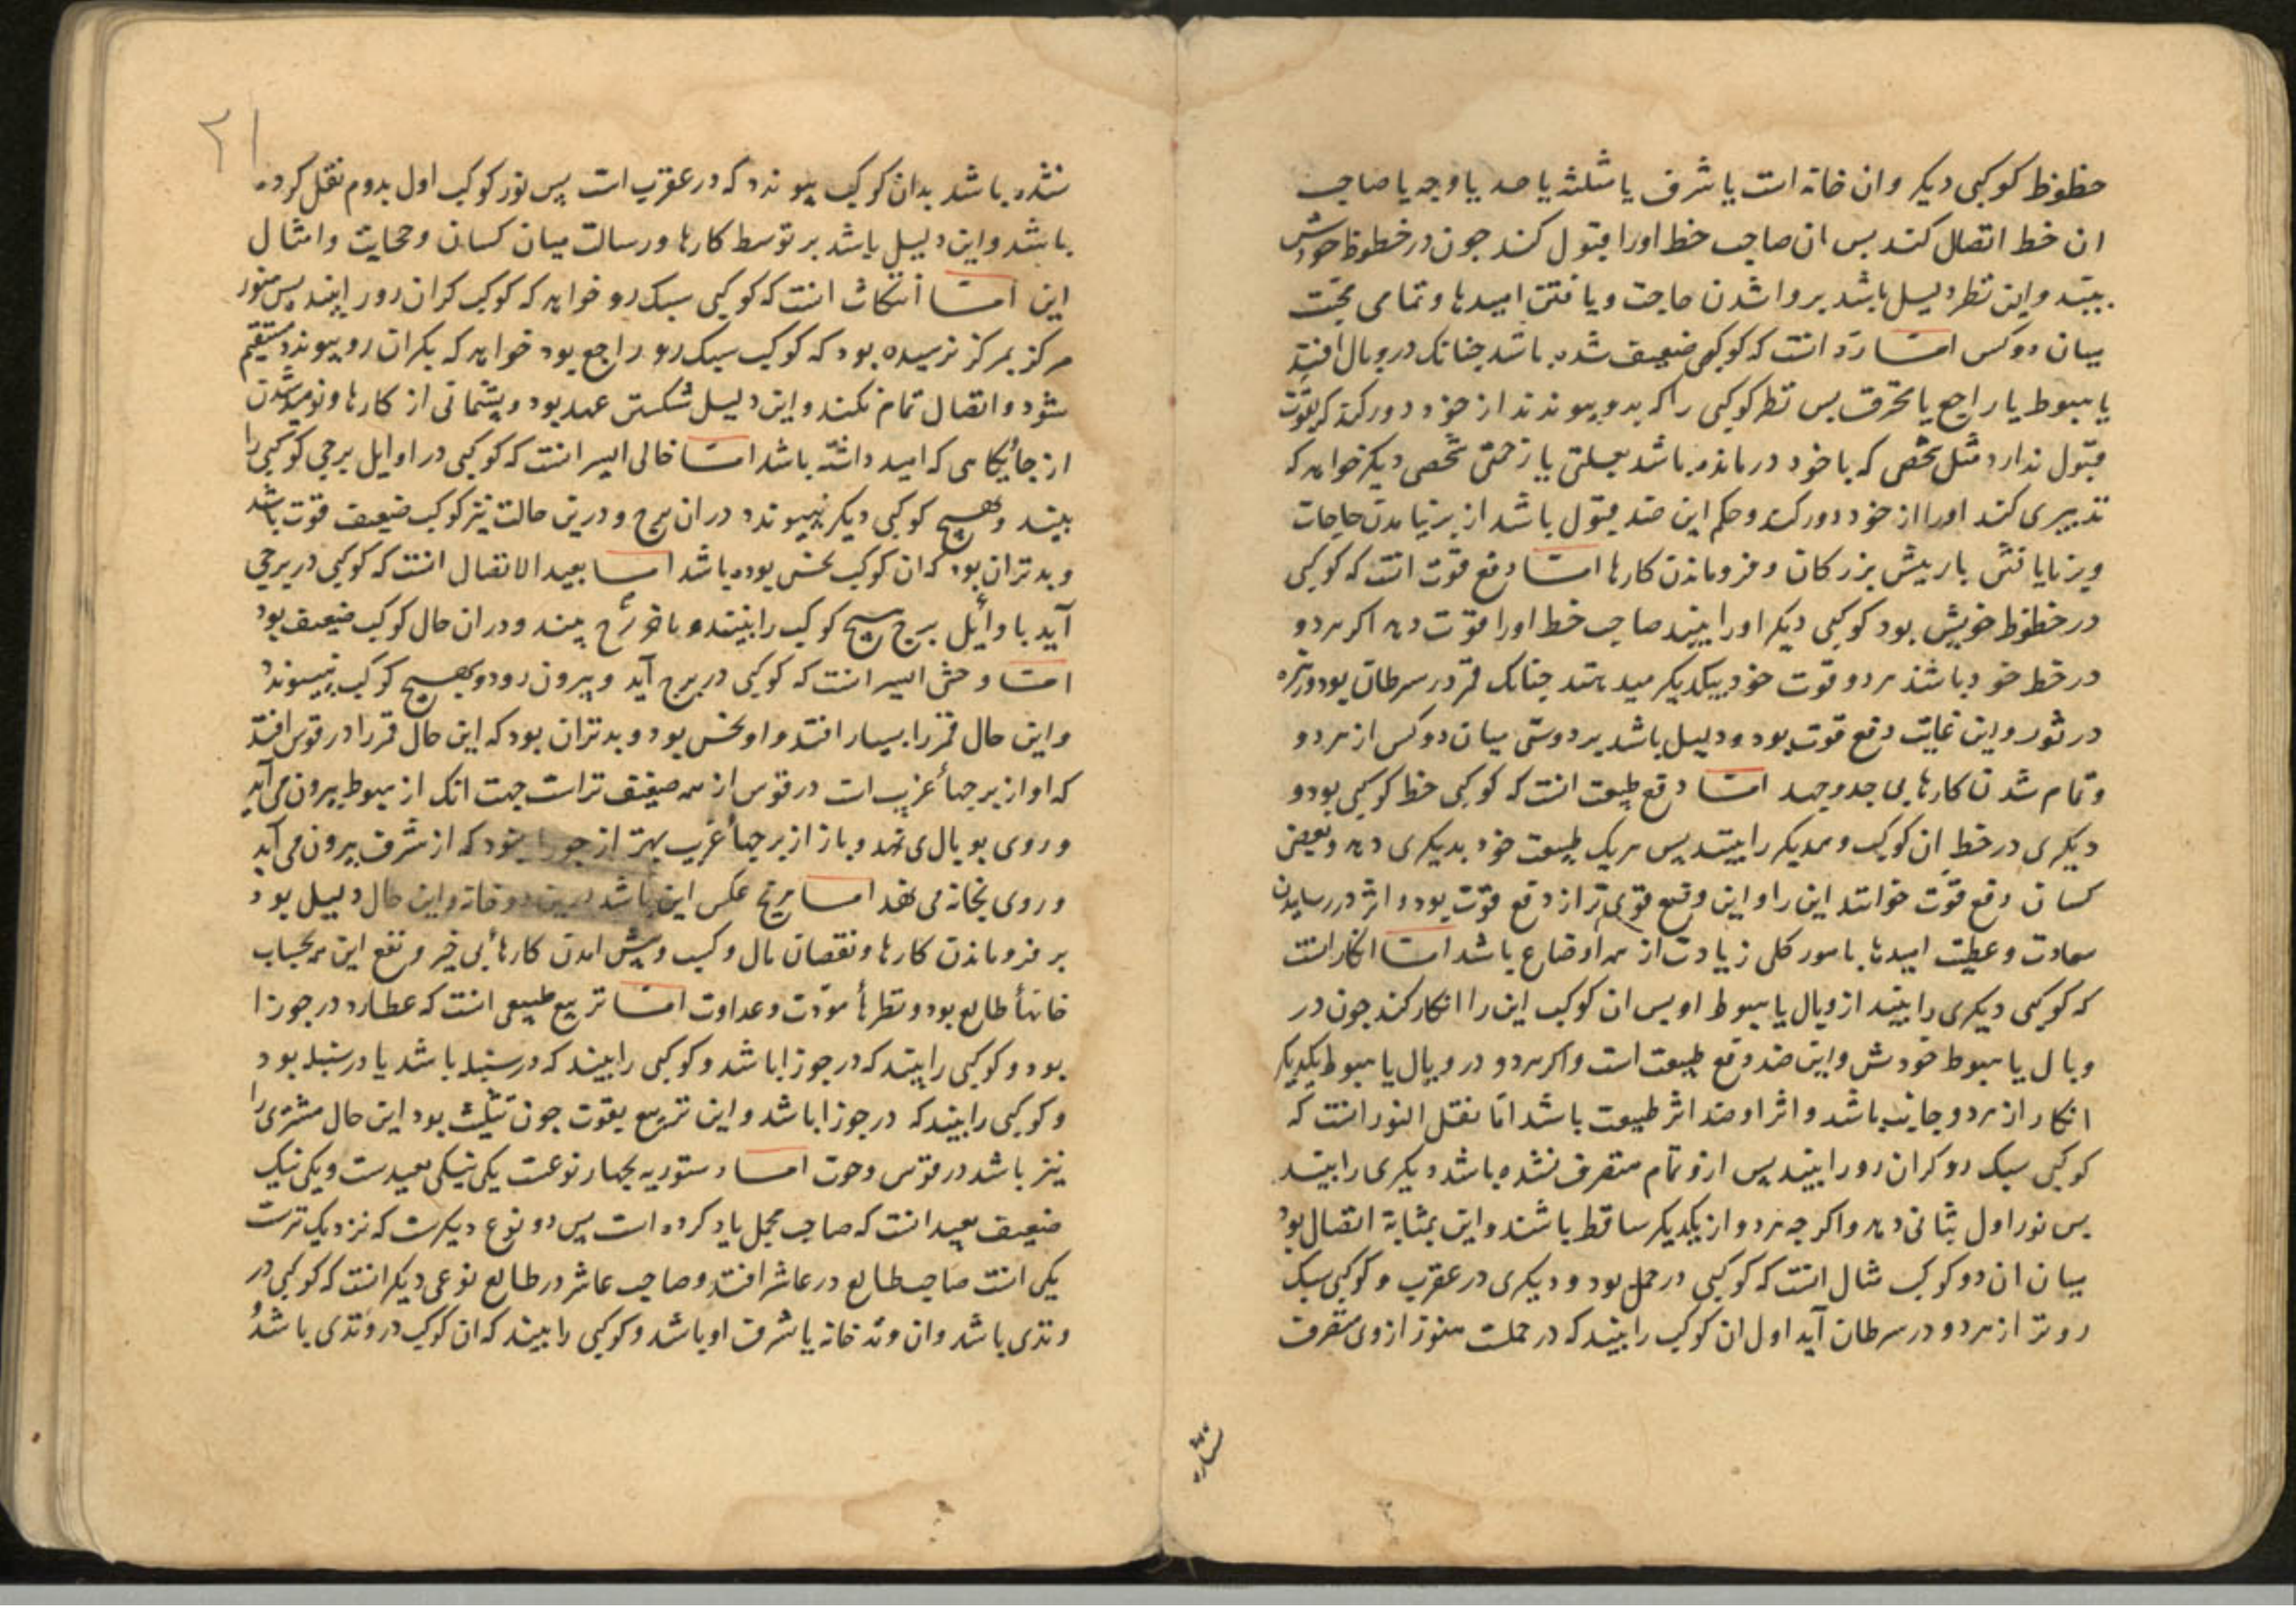 حظوظ کوکبی دیکر و ان خانه است یا شرف یا مثلثه یا حد یا وجه یا صاحب
ان خط اتصال کند بس ان صاحب خط اورا قبول کند جون در خطوظ خودش
ببیند و این نظر دلیل باشد بر روا شدن حاجت و یافتن امیدها و تمامی محبّت
میان دو کس امّا ردّ انست که کوکبی ضعیف شده باشد جنانک در وبال افتد
یا هبوط یا راجع یا محترق بس نظر کوکبی را که بدو پیوندند از خود دور کند که بقوّت
قبول ندارد مثل شخصی که با خود درمانده باشد بعلتی یا زحمتی شخصی دیکر خواهد که
تدبیری کند اورا از خود دور کند و حکم این ضد قبول باشد از برنیامدن حاجات
و برنایافتن بار پیش بزرکان و فروماندن کارها امّا دفع قوّت انست که کوکبی
در خطوظ خویش بود کوکبی دیکر اورا ببیند صاحب خط اورا قوّت دهد اکر هر دو
در خط خود باشند هر دو قوت خود بیکدیکر میدهند جنانک قمر در سرطان بود و زهره
در ثور و این غایت دفع قوت بود و دلیل باشد بر دوستی میان دو کس از هر دو
و تمام شدن کارها بی جد و جهد امّا دفع طبیعت انست که کوکبی خط کوکبی بود و
دیکری در خط ان کوکب و همدیکر را بینند پس هر یک طبیعت خود بدیکری دهد و بعضی
کسان دفع قوّت خوانند این را و این دفع قوی تر از دفع قوّت بود و اثر در رسانیدن
سعادت و عطیت امیدها بامور کلی زیادت از همه اوضاع باشد امّا انکار انست
که کوکبی دیکری را ببیند از وبال یا هبوط او بس ان کوکب این را انکار کند جون در
وبال یا هبوط خودش و این ضد دفع طبیعت است و اکر هر دو در وبال یا هبوط یکدیکر
انکار از هر دو جانب باشد و اثر او ضد اثر طبیعت باشد امّا نقل النور انست که
کوکبی سبک رو کران رو را ببیند پس ازو تمام منصرف نشده باشد دیکری را ببیند
بس نور اول بثانی دهد و اکر جه هر دو از یکدیکر ساقط باشند و این بمثابة اتصال بود
میان ان دو کوکب مثال انست که کوکبی در حمل بود و دیکری در عقرب و کوکبی سبک
روتر از هر دو در سرطان آید اول ان کوکب را بیند که در حملست هنوز ازوی منصرف
نشده
۲۱
نشده باشد بدان کوکب پیوندد که در عقرب است پس نور کوکب اول بدوم نقل کرده
باشد و این دلیل باشد بر توسط کارها و رسالت میان کسان و حجابت و امثال
این امّا انتکاث انست که کوکبی سبک رو خواهد که کوکب کران رو را بیند پس هنوز
مرکز بمرکز نرسیده بود که کوکب سبک رو راجع بود خواهد که بکران رو پیوندد مستقیم
شود و اتصال تمام نکند و این دلیل شکستن عهد بود و پشیمانی از کارها و نومید شدن
از جایکاهی که امید داشته باشد امّا خالی السیر انست که کوکبی در اوایل برجی کوکبی را
بیند و بهیچ کوکبی دیکر نپیوندد در ان برج و درین حالت نیز کوکب ضعیف قوّت باشد
و بدتر ان بود که ان کوکب نحس بوده باشد امّا بعید الاتصال انست که کوکبی در برجی
آید باوائل برج هیچ کوکب را نبیند و بآخر برج بیند و در ان حال کوکب ضعیف بود
امّا وحشی السیر انست که کوکبی در برج آید و بیرون رود و بهیچ کوکب نپیوندد
و این حال قمر را بسیار افتد و او نحس بود و بدتر ان بود که این حال قمر را در قوس افتد
که او از برجهاء غریب است در قوس از همه ضعیف تر است جهت انک از هبوط بیرون می آید
و روی بوبال می نهد و باز از برجهاء غریب بهتر از جوزا نبود که از شرف بیرون می آید
و روی بخانه می نهد امّا مریخ عکس این باشد درین دو خانه و این حال دلیل بود
بر فروماندن کارها و نقصان مال و کسب و پیش امدن کارهاء بی خیر و نفع این همه بحساب
خانهاء طالع بود و نظرهاء مودّت و عداوت امّا تربیع طبیعی انست که عطارد در جوزا
بود و کوکبی را بیند که در جوزا باشد و کوکبی را بیند که در سنبله باشد یا در سنبله بود
و کوکبی را بیند که در جوزا باشد و این تربیع بقوت جون تثلیث بود این حال مشتری را
نیز باشد در قوس و حوت امّا دستوریه بجهار نوعست یکی نیکی بعیدست و یکی نیک
ضعیف بعید انست که صاحب مجمل یاد کرده است پس دو نوع دیکرست که نزدیک ترست
یکی انست صاحب طالع در عاشر افتد و صاحب عاشر در طالع نوعی دیکر انست که کوکبی در
وتدی باشد و ان وتد خانه یا شرف او باشد و کوکبی را ببیند که ان کوکب در وتدی باشد و